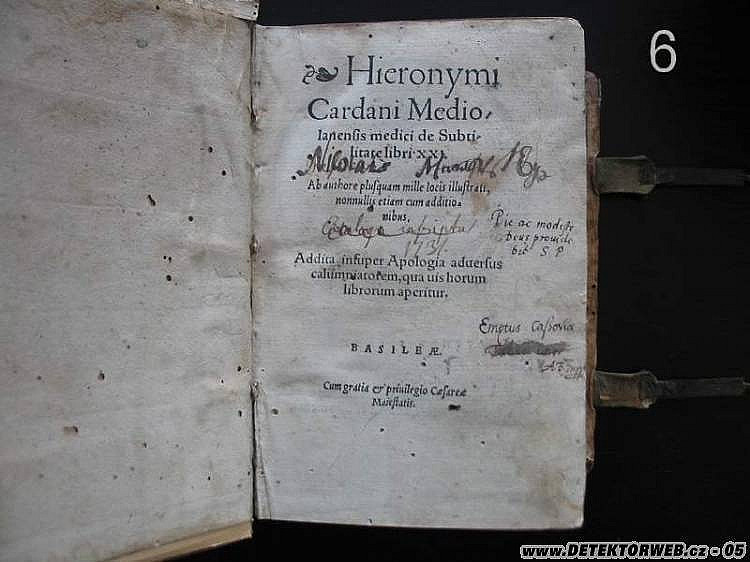 6
Hieronymi
Cardani Medio-
lanensis medici de Subti-
litate libri XXI.
Nikolaus
Ab authore plusquam mille locis illustrati,
nonnullis etiam cum additio-
nibus.
Catalogo inscriptus
Pie ac modeste
Deus provide
bit S. P
Addita insuper Apologia adversus
calumniatorem, qua vis horum
librorum aperitur.
Emptus Cassoviæ
BASILEÆ.
Cum gratia & privilegio Cæsareæ
Maiestatis.
www.DETEKTORWEB.cz - 05